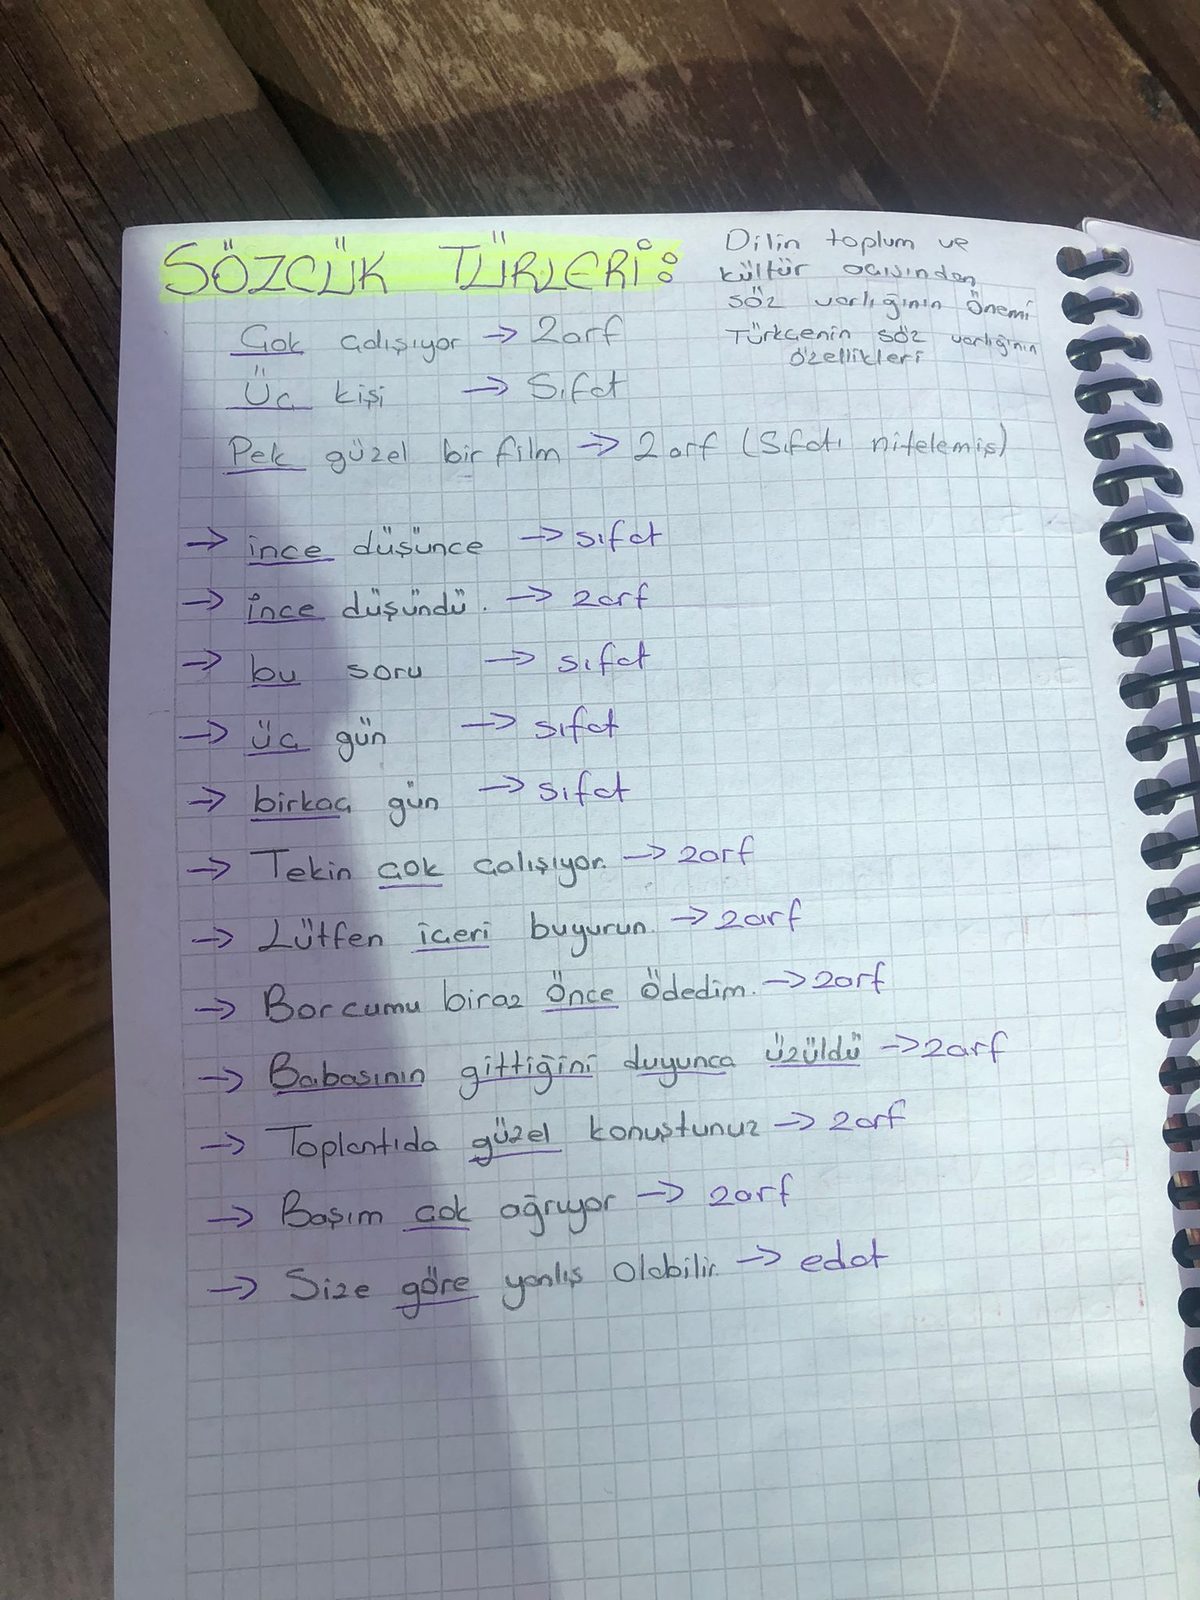 SÖZCÜK TÜRLERİ:
Dilin toplum ve
kültür açısından
söz varlığının önemi
Türkçenin söz varlığının
özellikleri
Çok çalışıyor → Zarf
Üç kişi → Sıfat
Pek güzel bir film → Zarf (Sıfatı nitelemiş)
→ ince düşünce → sıfat
→ İnce düşündü. → zarf
→ bu soru → sıfat
→ üç gün → sıfat
→ birkaç gün → sıfat
→ Tekin çok çalışıyor. → zarf
→ Lütfen içeri buyurun. → zarf
→ Borcumu biraz önce ödedim. → zarf
→ Babasının gittiğini duyunca üzüldü → zarf
→ Toplantıda güzel konuştunuz → zarf
→ Başım çok ağrıyor → zarf
→ Size göre yanlış olabilir. → edat